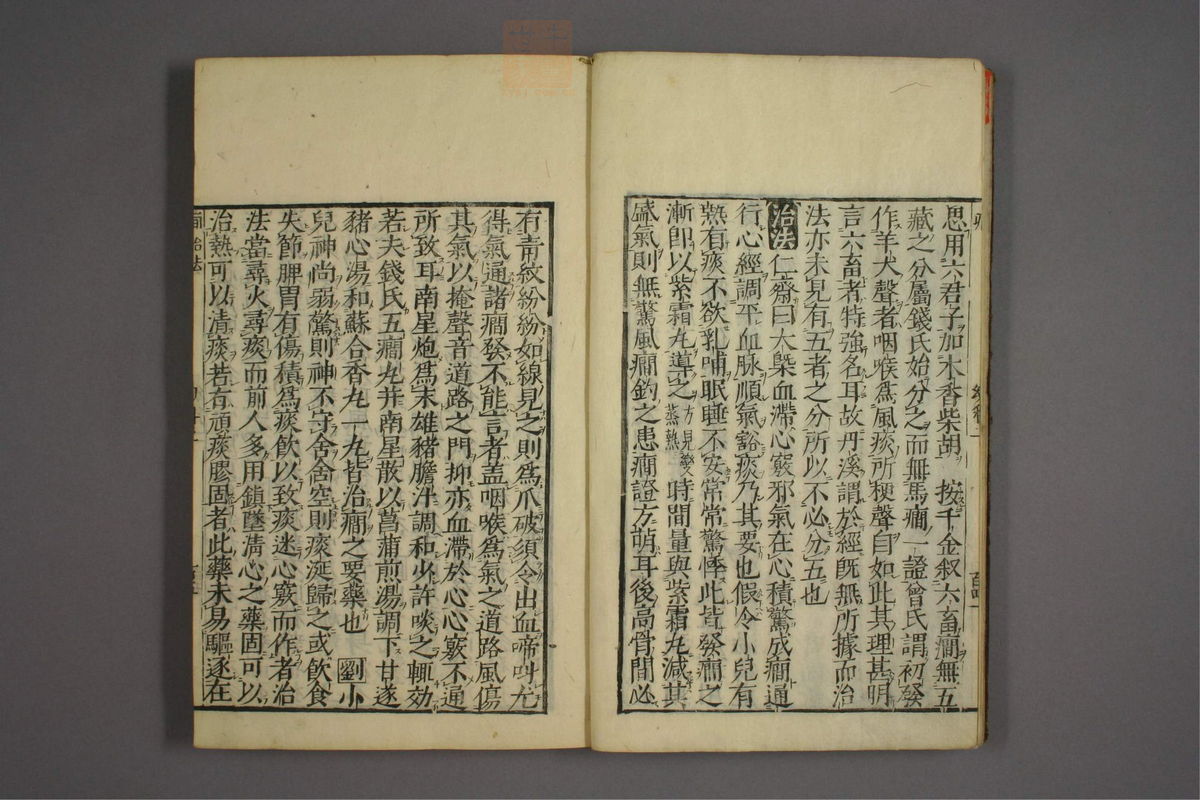 思用六君子加木香柴胡　按千金叙六畜澗無五
藏之分屬錢氏始分之而無馬癎一證曾氏謂初發
作羊犬聲者咽喉爲風痰所梗聲自如此其理甚明
言六畜者特強名耳故丹溪謂於經既無所據而治
法亦未見有五者之分所以不必分五也
治法　仁齋曰大槩血滯心竅邪氣在心積驚成癎通
行心經調平血脉順氣豁痰乃其要也假令小兒有
熱有痰不欲乳哺眠睡不安常常驚悸此皆發癎之
漸即以紫霜丸導之方見變蒸熱時間量與紫霜丸減其
盛氣則無驚風癎釣之患癎證方萌耳後高骨間必
有青紋紛紛如線見之則爲爪破須令出血啼叫尤
得氣通諸癎發不能言者盖咽喉爲氣之道路風傷
其氣以掩聲音道路之門抑亦血滯於心心竅不通
所致耳南星炮爲末雄豬膽汁調和少許啖之輒効
若夫錢氏五癎丸并南星散以菖蒲煎湯調下甘遂
豬心湯和蘇合香丸一丸皆治癎之要藥也　劉　小
兒神尚弱驚則神不守舍舍空則痰涎歸之或飲食
失節脾胃有傷積爲痰飲以致痰迷心竅而作者治
法當尋火尋痰而前人多用鎮墜清心之藥固可以
治熱可以清痰若有頑痰膠固者此藥未易驅逐在